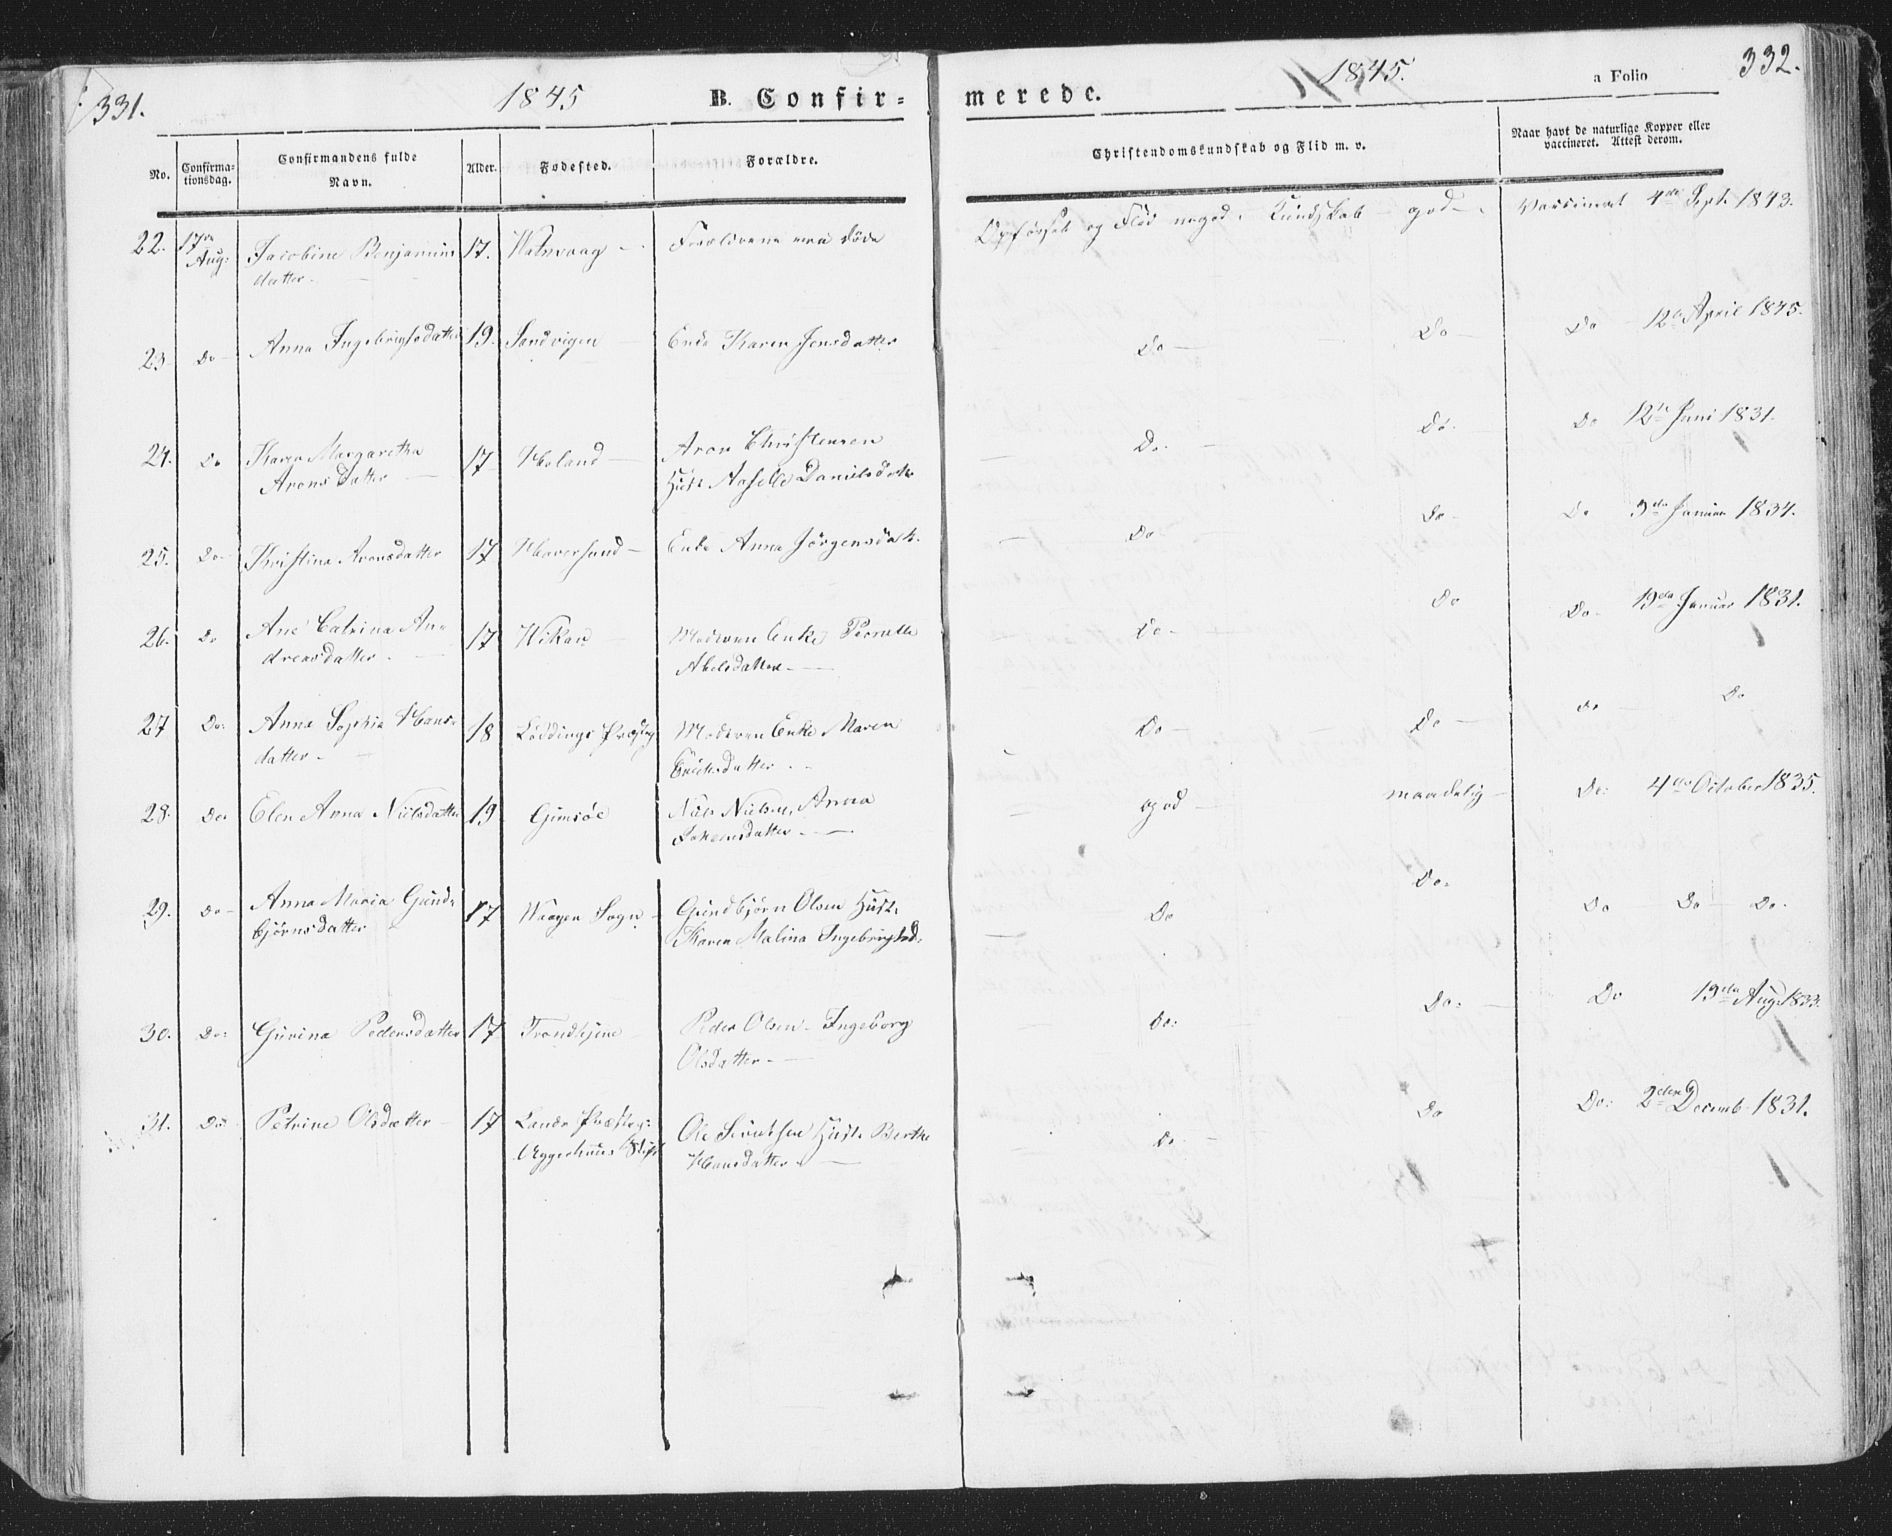 331.
1845
B. Confir=
No.
Confirma=
tionsdag.
Confirmandens fulde
Navn.
Alder.
Fødested.
Forældre.
22. 17de Aug: Jacobine Benjamins 17. Forældrene ere døde
datter.
23 Do Anna Ingebrigtsdatter 19. Sandvigen Enke Karen Jensdatter
24. Do Karen Margaretha 17 Høland Aron Christensen
Arons Datter Hust. Daniels datter
25. Do Kristina Aronsdatter 17 Haversand Enke Anna Jørgensdatt.
26. Do Ane Catrina An= 17 Vikan Moderen Enke
dreasdatter. Abelsdatter
27 Do: Anna Sophia Hans= 18 Løddings Præsteg Moderen Enke Maren
datter. Ericksdatter
28. Do Elen Anna Nielsdatter 19 Gimsøe Niels Nielsen, Anna
29. Do Anna Maria Gund= 17 Waagen Sogn Gundbjørn Olsen Hust:
bjørnsdatter Karen Malina Ingebrigtsd:
30. Do: Gurina Pedersdatter 17 Trondhjem Peder Olsen Ingeborg
Olsdatter
31. Do: Petrine Olsdatter 17 Lands Præsteg: Ole Hust. Berthe
Aggerhuus Stift Hansdatter
1845.
a Folio
332.
merede.
Christendomskundskab og Flid m. v.
Naar havt de naturlige Kopper eller
vaccineret. Attest derom.
Opførsel og Flid meget. Kundskab god. Vaccineret 4de Sept. 1843.
Do Do Do 12te April 1845.
Do. Do. Do 12te Juni 1831.
Do Do Do 3de Januar 1834.
Do. Do Do. 19de Januar 1831.
Do Do do Do
god maadelig Do: 4de October 1835.
Do Do. Do Do Do.
Do: Do: Do 13de Aug. 1833.
Do Do Do: 2den Decemb 1831.